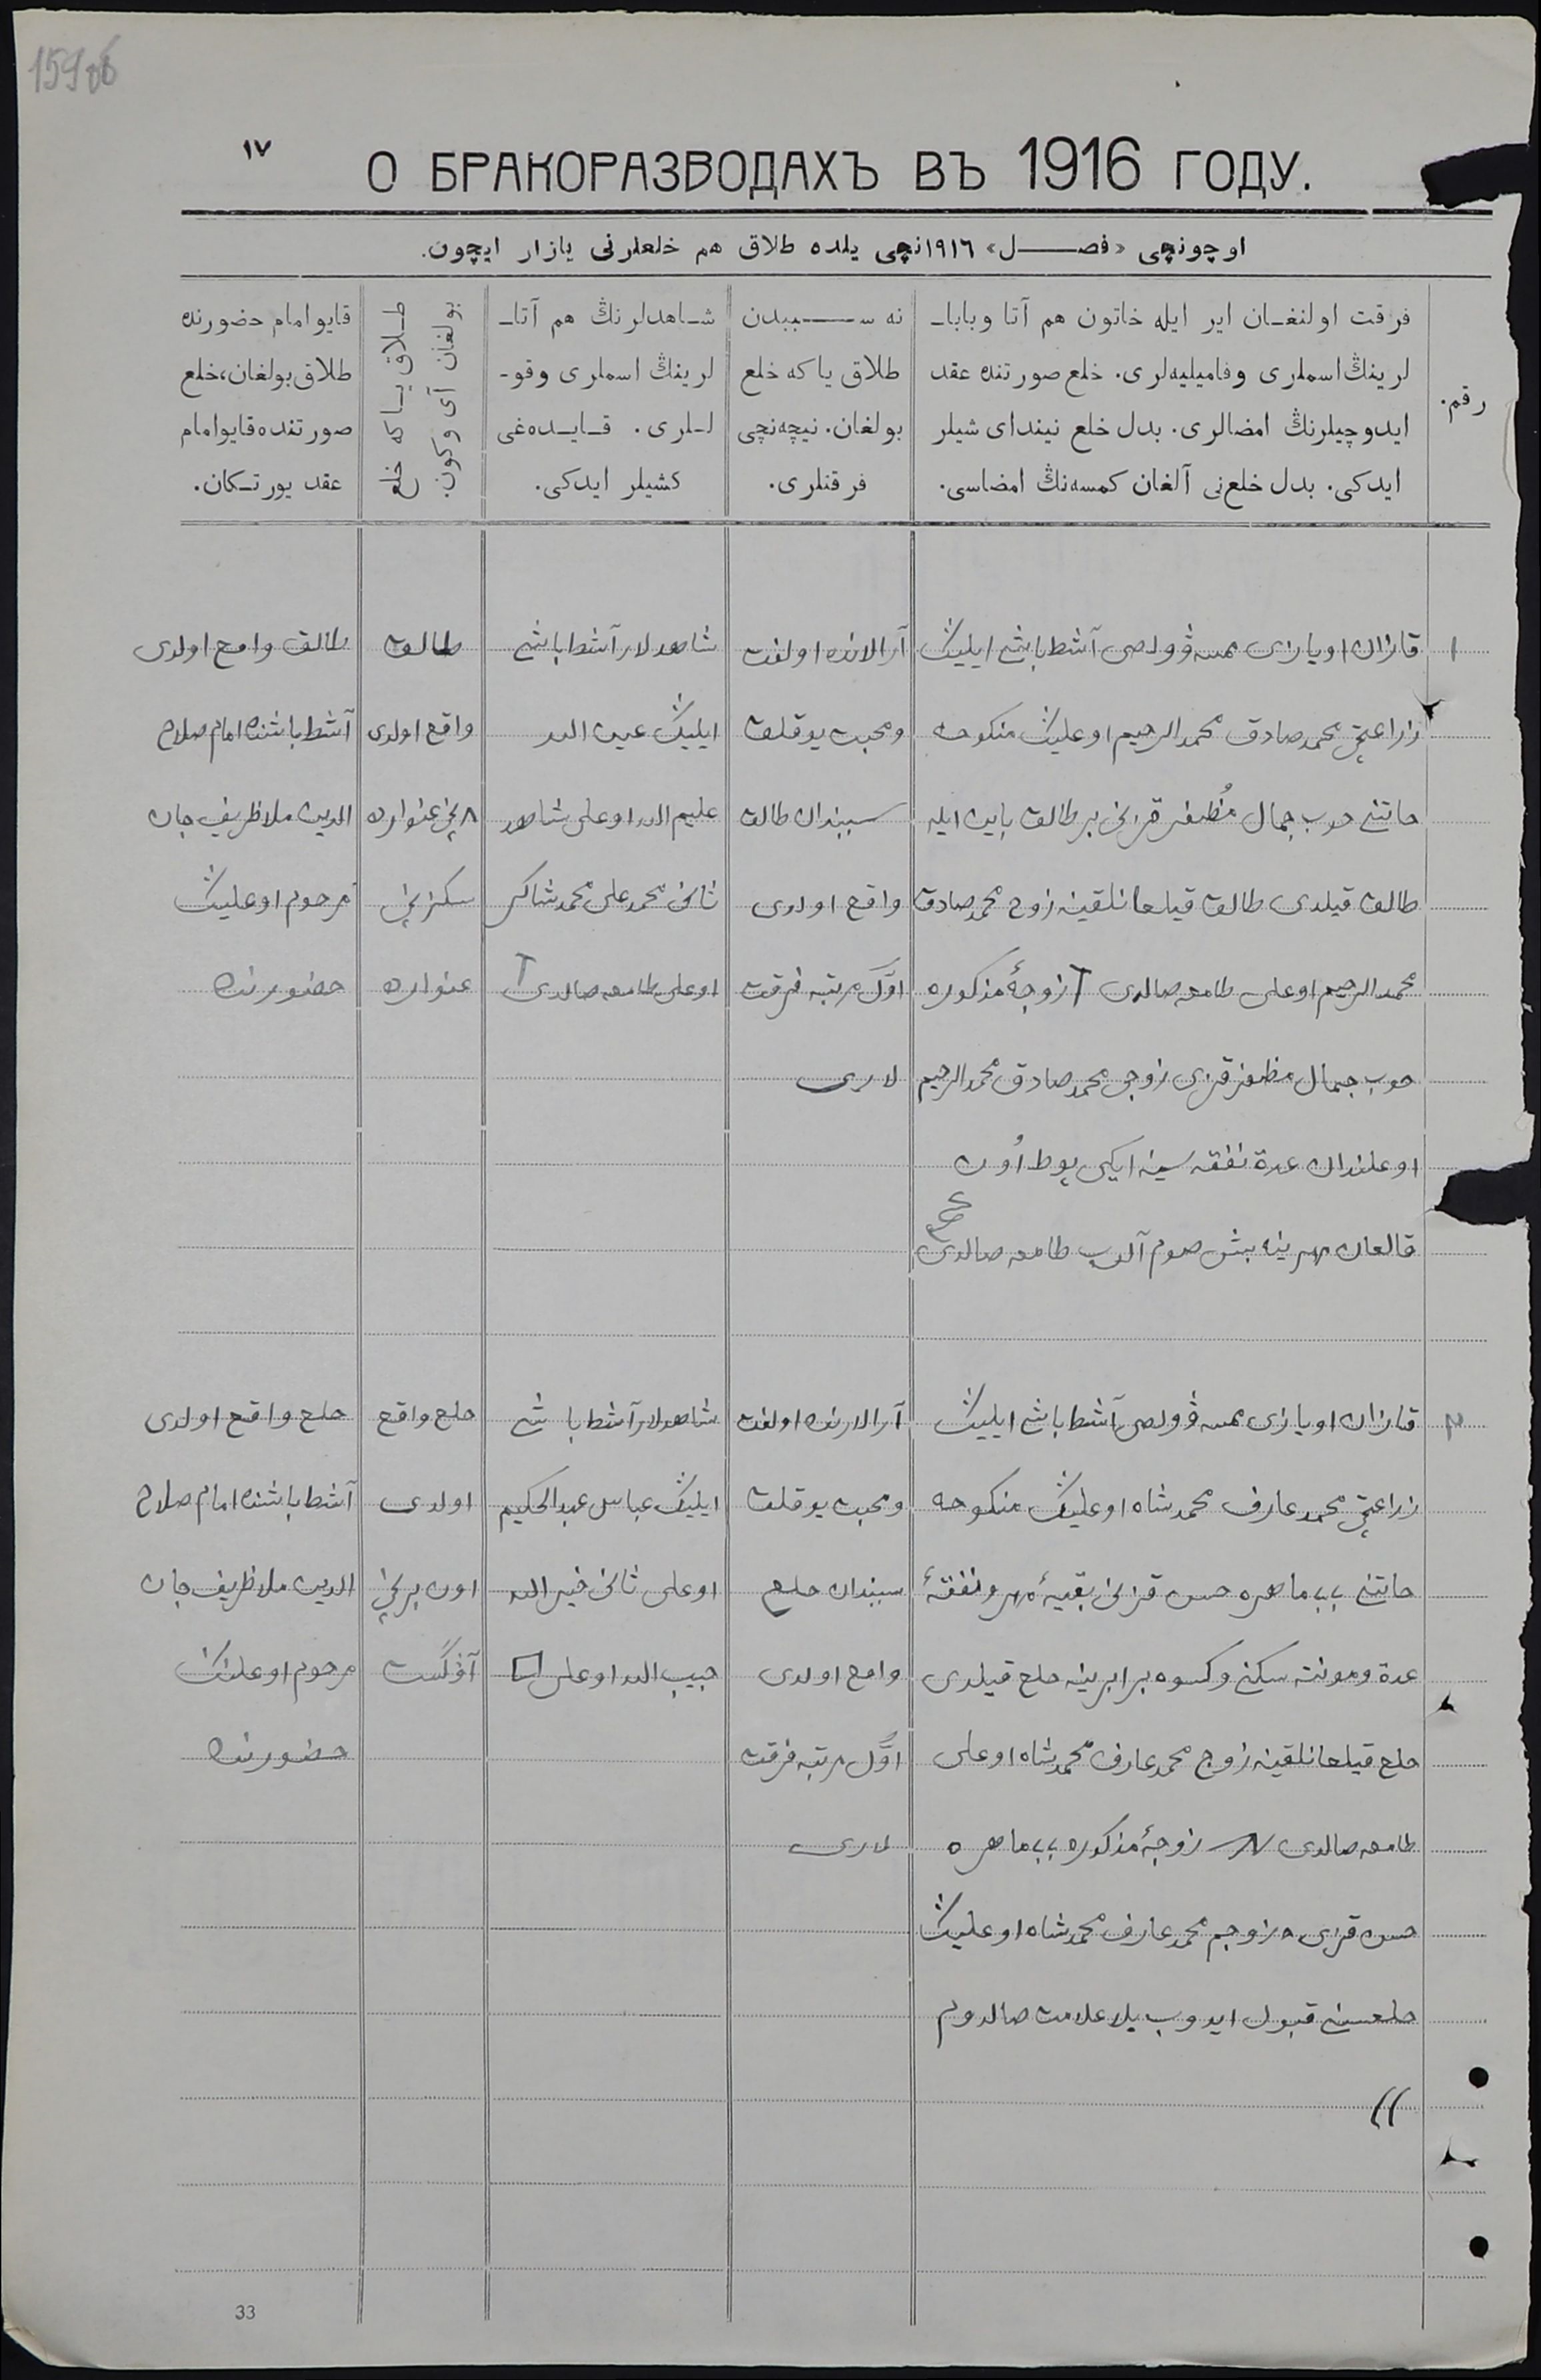 159об
١٧
О БРАКОРАЗВОДАХЪ ВЪ 1916 ГОДУ.
اوچونچی «فصـــل» ١٩١٦نچی یلده طلاق هم خلعلرنی یازار ایچون.
رقم.
فرقت اولنغـان ایر ایله خاتون هم آتا وبابا‌ـ
لرینڭ اسملری وفامیلیه‌لری. خلع صورتنده عقد
ایدوچیلرنڭ امضالری. بدل خلع نیندای شیلر
ایدکی. بدل خلع‌نی آلغان کمسه‌نڭ امضاسی.
نه ســـببدن
طلاق یا که خلع
بولغان. نیچه‌نچی
فرقتلری.
شـاهدلرنڭ هم آتا‌ـ
لرینڭ اسملری وقو‌ـ
لـلری. قـایـده‌غی
کشیلر ایدکی.
طـلاق یـا که خلع
بولغان آی وکون.
قایو امام حضورنده
طلاق بولغان، خلع
صورتنده قایو امام
عقد یورتـکان.
١
قازان اویازی ممسه ڤولصی آشط باشی ایلینڭ
زراعتچی محمدصادق محمدالرحیم اوغلینڭ منکوحه
خاتنی حوب جمال مُظفر قزینی بر طلاق باین ایله
طلاق قیلدی طلاق قیلغانلقینه زوج محمدصادق
محمدالرحیم اوغلی طامغه صالدی T زوجهٔ مذکوره
حوب جمال مظفر قزی زوجی محمدصادق محمدالرحیم
اوغلندان عدة نفقه سینه ایکی پوط اُون
قالغان مهرینه بش صوم آلوب طامغه صالدی
آرالرنده اولفت
ومحبت یوقلق
سببندان طلاق
واقع اولدی
اوّل مرتبه فرقت
لاری
شاهدلار آشط باشی
ایلینڭ عین الله
علیم الله اوغلی شاهد
ثانی محمدعلی محمدشاکر
اوغلی طامغه صالدی T
طلاق
واقع اولدی
٨نچی غنوارده
سکزنچی
غنوارده
طلاق واقع اولدی
آشط باشنده امام صلاح
الدین ملا ظریف جان
مرحوم اوغلینڭ
حضورنده
٢
قازان اویازی ممسه ڤولصی آشط باشی ایلینڭ
زراعتچی محمدعارف محمدشاه اوغلینڭ منکوحه
خاتنی بب ماهره حسن قزینی بقیهٔ مهر ونفقهٔ
عدة ومونت سکنی وکسوه برابرینه خلع قیلدی
خلع قیلغانلقینه زوج محمدعارف محمدشاه اوغلی
طامغه صالدی زوجهٔ مذکوره بب ماهره
حسن قزی زوجم محمدعارف محمدشاه اوغلینڭ
خلعسنی قبول ایدوب یلا علامت صالدوم
آرالارنده اولفت
ومحبت یوقلق
سببندان خلع
واقع اولدی
اوّل مرتبه فرقت
لاری
شاهدلار آشط باشی
ایلینڭ عباس عبدالحکیم
اوغلی ثانی خیرالله
حبیب الله اوغلی
خلع واقع
اولدی
اون برنچی
آڤگست
خلع واقع اولدی
آشط باشنده امام صلاح
الدین ملا ظریف جان
مرحوم اوغلننڭ
حضورنده
33